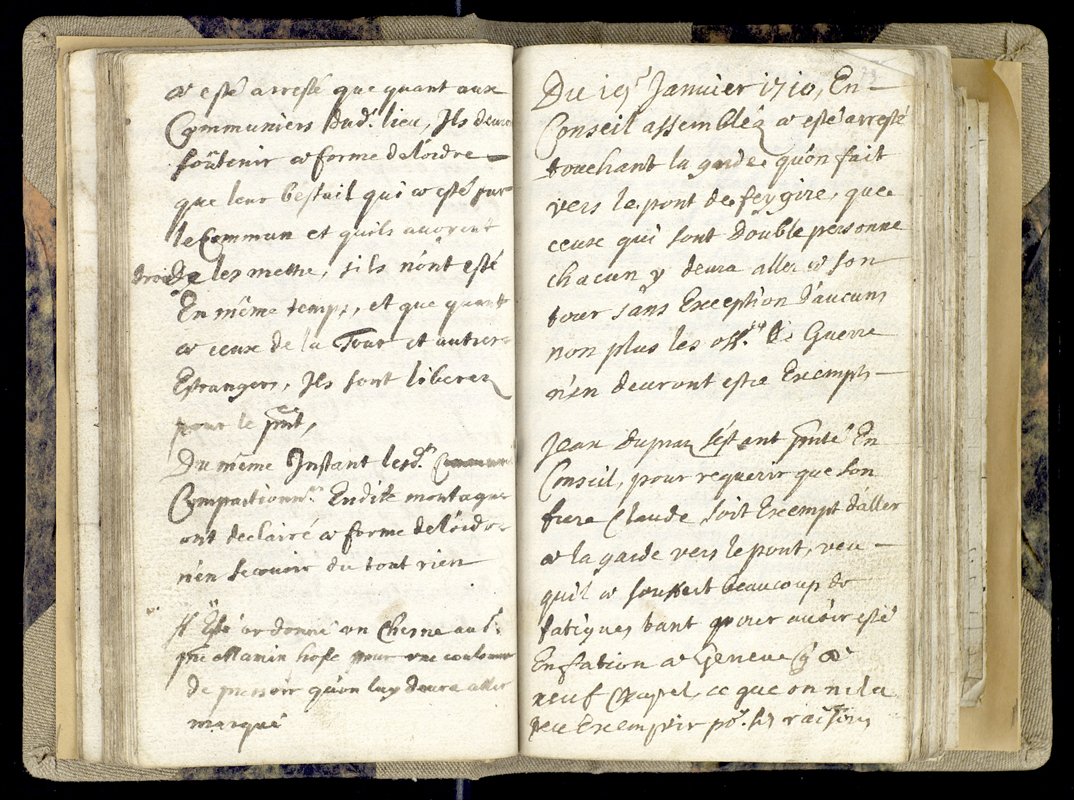 a esté arresté que quant aux
Communiers dud.t lieu, Ils deuro
soûtenir a forme de l'ordre
que leur bestail qui a esté sur
le Commun et quils auoyent
droit de les mettre, sils n'ont esté
En même temps, et que quant
a ceux de la Tour et autres
Estrangers, Ils sont liberez
pour le pñt,
Du même Instant lesd.t
Compartionn.rs Endite montagne
ont declairé a forme de l'ordre
n'en scauoir du tout rien
A Esté ordonné un Chesne au S.r
hoste pour une coulonne
de pressoir qu'on luy deura aller
marqué
Du 19.e Januier 1710, En
Conseil assemblé a esté arresté
touchant la garde qu'on fait
vers le pont de feygire, que
ceux qui sont Double personne
chacun y deura aller a son
tour sans Exception d'aucuns
non plus les off.rs de Guerre
n'en deuront estre Exempts
Jean dupraz s'estant pñté En
Conseil, pour requerir que son
frere Claude soit Exempt d'aller
a la garde vers le pont, veu
qu'il a souffert beaucoup de
fatigues tant pour auoir esté
En station a Geneue q̃ a
neuf ce que on ne la
peu Exempter po.r ses raisons